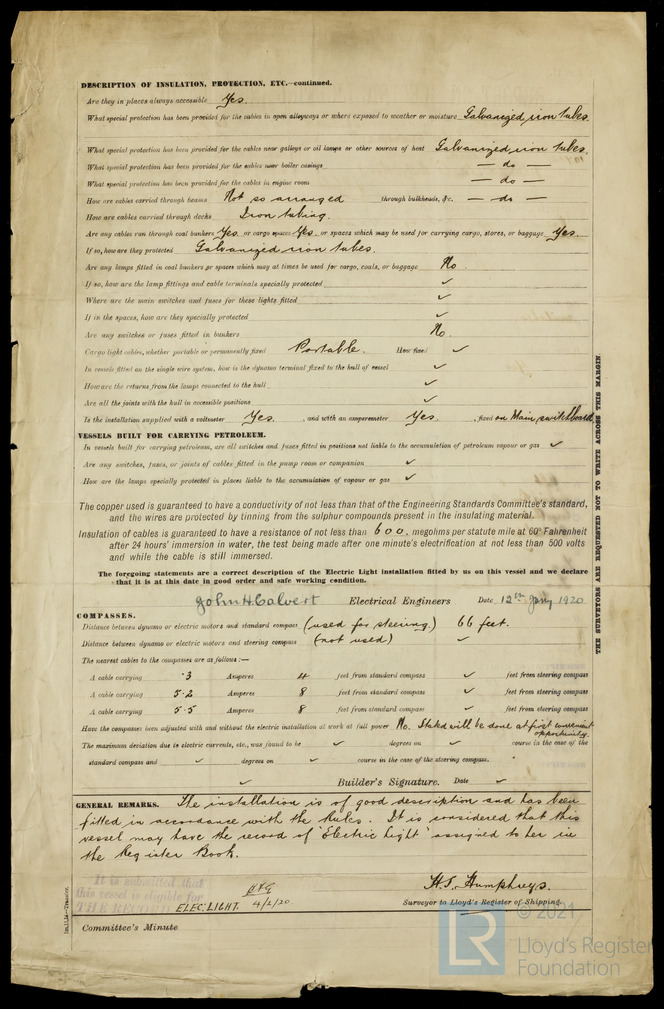 DESCRIPTION OF INSULATION, PROTECTION, ETC.—continued.
Are they in places always accessible Yes.
What special protection has been provided for the cables in open alleyways or where exposed to weather or moisture Galvanized iron tubes.
What special protection has been provided for the cables near galleys or oil lamps or other sources of heat Galvanized iron tubes.
What special protection has been provided for the cables near boiler casings — do —
What special protection has been provided for the cables in engine room — do —
How are cables carried through beams Not so arranged through bulkheads, &c. — do —
How are cables carried through decks Iron tubing.
Are any cables run through coal bunkers Yes or cargo spaces Yes or spaces which may be used for carrying cargo, stores, or baggage Yes.
If so, how are they protected Galvanized iron tubes.
Are any lamps fitted in coal bunkers or spaces which may at times be used for cargo, coals, or baggage No.
If so, how are the lamp fittings and cable terminals specially protected ✓
Where are the main switches and fuses for these lights fitted ✓
If in the spaces, how are they specially protected ✓
Are any switches or fuses fitted in bunkers No.
Cargo light cables, whether portable or permanently fixed Portable. How fixed ✓
In vessels fitted on the single wire system, how is the dynamo terminal fixed to the hull of vessel ✓
How are the returns from the lamps connected to the hull ✓
Are all the joints with the hull in accessible positions ✓
Is the installation supplied with a voltmeter Yes. , and with an amperemeter Yes. , fixed on Main switchboard.
VESSELS BUILT FOR CARRYING PETROLEUM.
In vessels built for carrying petroleum, are all switches and fuses fitted in positions not liable to the accumulation of petroleum vapour or gas ✓
Are any switches, fuses, or joints of cables fitted in the pump room or companion ✓
How are the lamps specially protected in places liable to the accumulation of vapour or gas ✓
The copper used is guaranteed to have a conductivity of not less than that of the Engineering Standards Committee's standard,
and the wires are protected by tinning from the sulphur compounds present in the insulating material.
Insulation of cables is guaranteed to have a resistance of not less than 600. megohms per statute mile at 60° Fahrenheit
after 24 hours' immersion in water, the test being made after one minute's electrification at not less than 500 volts
and while the cable is still immersed.
The foregoing statements are a correct description of the Electric Light installation fitted by us on this vessel and we declare
that it is at this date in good order and safe working condition.
John H Calvert Electrical Engineers Date 12th Jany 1920
COMPASSES.
Distance between dynamo or electric motors and standard compass (used for steering.) 66 feet.
Distance between dynamo or electric motors and steering compass (not used) ✓
The nearest cables to the compasses are as follows:—
A cable carrying ·3 Amperes 4 feet from standard compass ✓ feet from steering compass
A cable carrying 5·2 Amperes 8 feet from standard compass ✓ feet from steering compass
A cable carrying 5·5 Amperes 8 feet from standard compass ✓ feet from steering compass
Have the compasses been adjusted with and without the electric installation at work at full power No. Stated will be done at first convenient
opportunity.
The maximum deviation due to electric currents, etc., was found to be ✓ degrees on ✓ course in the case of the
standard compass and ✓ degrees on ✓ course in the case of the steering compass.
✓ Builder's Signature. Date ✓
GENERAL REMARKS. The installation is of good description and has been
fitted in accordance with the Rules. It is considered that this
vessel may have the record of 'Electric Light' assigned to her in
the Register Book.
It is submitted that
this vessel is eligible for
THE RECORD ELEC. LIGHT. 4/2/20
H.T. Humphreys.
Surveyor to Lloyd's Register of Shipping.
Committee's Minute
THE SURVEYORS ARE REQUESTED NOT TO WRITE ACROSS THIS MARGIN.
LR
© 2021
Lloyd's Register
Foundation